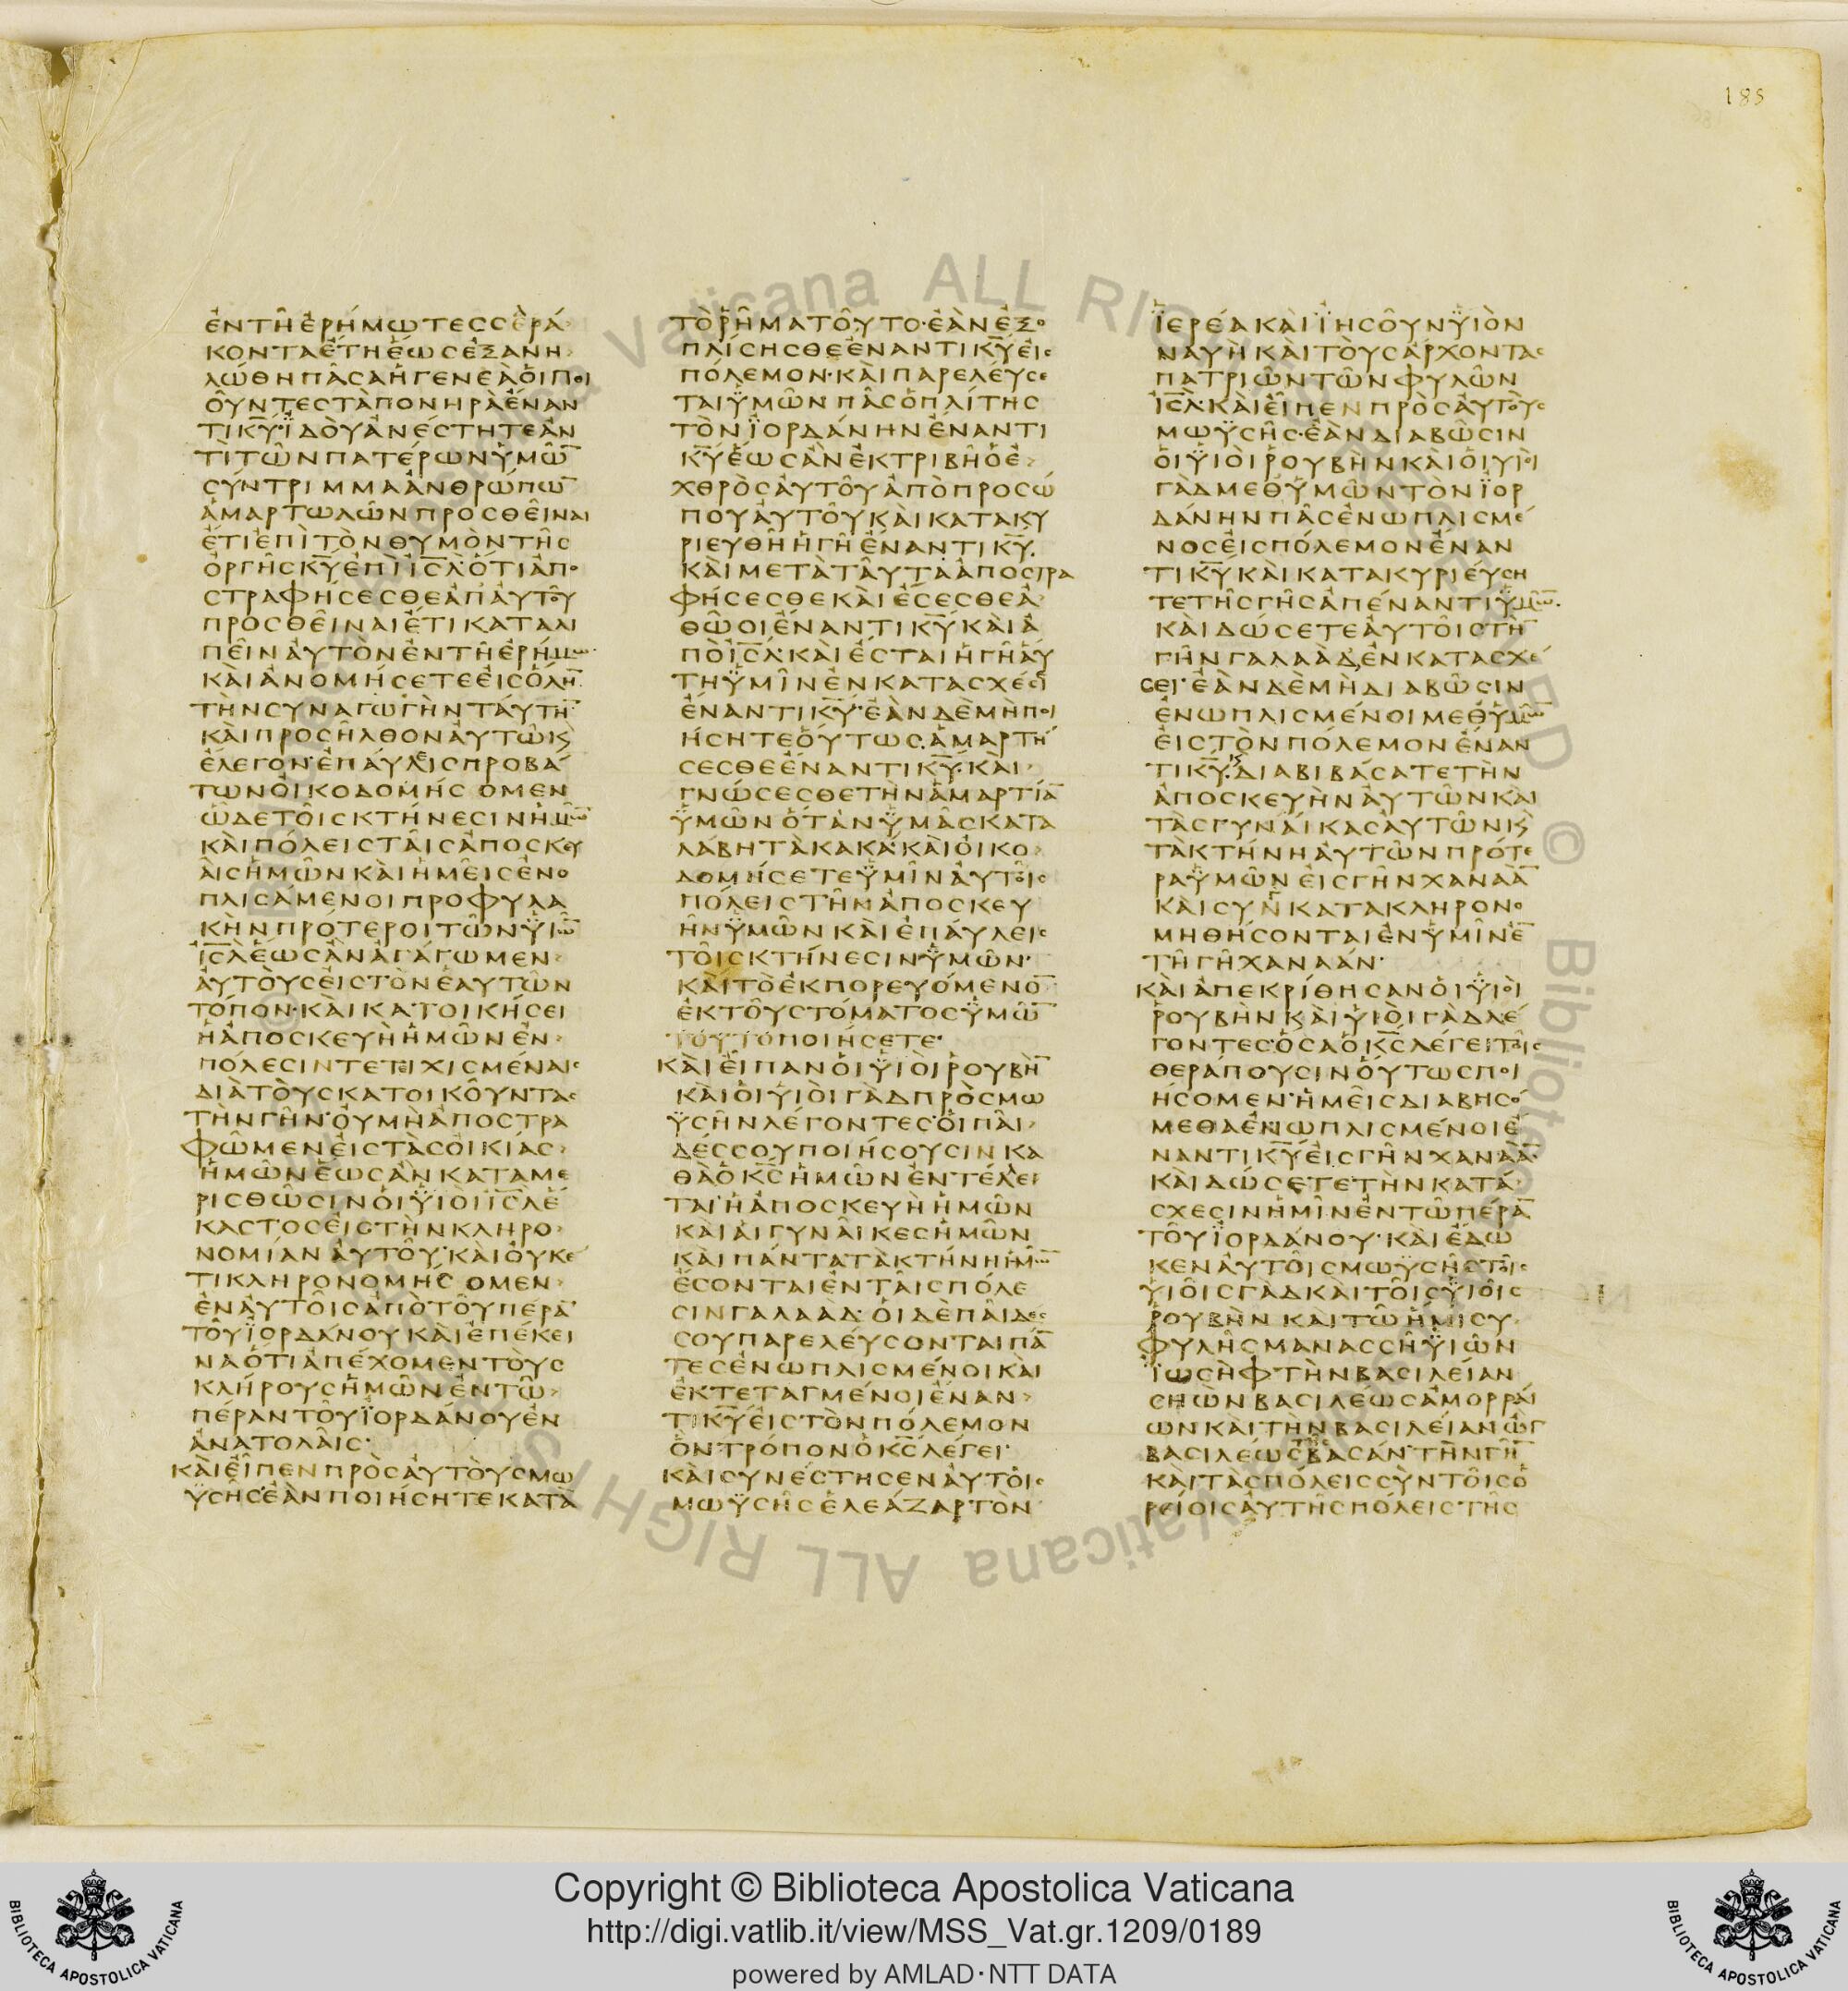 185
ἐν τῆ ἐρήμω τεσσερά
κοντα ἔτη ἕως ἐξανη
λώθη πᾶσα ἡ γενεὰ οἱ ποι
οῦντες τὰ πονηρὰ ἔναν
τι κ̅υ̅· ἰδοὺ ἀνέστητε ἀν
τὶ τῶν πατέρων ὑμῶ̅
σύντριμμα ἀνθρώπω̅
ἁμαρτωλῶν προσθεῖναι
ἔτι ἐπὶ τὸν θυμὸν τῆς
ὀργῆς κ̅υ̅ ἐπὶ ι̅σ̅λ̅· ὅτι ἀπο
στραφήσεσθε ἀπ' αὐτοῦ
προσθεῖναι ἔτι καταλι
πεῖν αὐτὸν ἐν τῆ ἐρήμω·
καὶ ἀνομήσετε εἰς ὅλη̅
τὴν συναγωγὴν ταύτη̅·
καὶ προσῆλθον αὐτῶ κ̀
ἔλεγον· ἐπαύλεις προβά
των οἰκοδομήσομεν
ὧδε τοῖς κτήνεσιν ἡμῶ̅
καὶ πόλεις ταῖς ἀποσκευ
αῖς ἡμῶν καὶ ἡμεῖς ἐνο
πλισάμενοι προφυλα
κὴν πρότεροι τῶν υἱῶ̅
ι̅σ̅λ̅ ἕως ἂν ἀγάγωμεν
αὐτοὺς εἰς τὸν ἑαυτῶν
τόπον· καὶ κατοικήσει
ἡ ἀποσκευὴ ἡμῶν ἐν
πόλεσιν τετειχισμέναις
διὰ τοὺς κατοικοῦντας
τὴν γῆν· οὐ μὴ ἀποστρα
φῶμεν εἰς τὰς οἰκίας
ἡμῶν ἕως ἂν καταμε
ρισθῶσιν οἱ υἱοὶ ι̅σ̅λ̅ ἕ
καστος εἰς τὴν κληρο
νομίαν αὐτοῦ· καὶ οὐκέ
τι κληρονομήσομεν
ἐν αὐτοῖς ἀπὸ τοῦ πέρα̅
τοῦ ἰορδάνου καὶ ἐπέκει
να ὅτι ἀπέχομεν τοὺς
κλήρους ἡμῶν ἐν τῶ
πέραν τοῦ ἰορδάνου ἐν
ἀνατολαῖς·
καὶ εἶπεν πρὸς αὐτοὺς μω
ϋσῆς· ἐὰν ποιήσητε κατὰ
τὸ ῥῆμα τοῦτο· ἐὰν ἐξο
πλίσησθε ἔναντι κ̅υ̅ εἰς
πόλεμον· καὶ παρελεύσε
ται ὑμῶν πᾶς ὁπλίτης
τὸν ἰορδάνην ἔναντι
κ̅υ̅ ἕως ἂν ἐκτριβῆ ὁ ἐ
χθρὸς αὐτοῦ ἀπὸ προσώ
που αὐτοῦ καὶ κατακυ
ριευθῆ ἡ γῆ ἔναντι κ̅υ̅·
καὶ μετὰ ταῦτα ἀποστρα
φήσεσθε καὶ ἔσεσθε ἀ
θῶοι ἔναντι κ̅υ̅ καὶ ἀ
πὸ ι̅σ̅λ̅· καὶ ἔσται ἡ γῆ αὕ
τη ὑμῖν ἐν κατασχέσι̅
ἔναντι κ̅υ̅· ἐὰν δὲ μὴ ποι
ήσητε οὕτως ἁμαρτή
σεσθε ἔναντι κ̅υ̅· καὶ
γνώσεσθε τὴν ἁμαρτία̅
ὑμῶν ὅταν ὑμᾶς κατα
λάβη τὰ κακά· καὶ οἰκο
δομήσετε ὑμῖν αὐτοῖς
πόλεις τῆ ἀποσκευ
ῆ ὑμῶν καὶ ἐπαύλεις
τοῖς κτήνεσιν ὑμῶν·
καὶ τὸ ἐκπορευόμενο̅
ἐκ τοῦ στόματος ὑμῶ̅
τοῦτο ποιήσετε·
καὶ εἶπαν οἱ υἱοὶ ῥουβὴ̅
καὶ οἱ υἱοὶ γὰδ πρὸς μω
ϋσῆν λέγοντες· οἱ παῖ
δές σου ποιήσουσιν κα
θὰ ὁ κ̅ς̅ ἡμῶν ἐντέλλε
ται· ἡ ἀποσκευὴ ἡμῶν
καὶ αἱ γυναῖκες ἡμῶν
καὶ πάντα τὰ κτήνη ἡμῶ̅
ἔσονται ἐν ταῖς πόλε
σιν γαλαάδ· οἱ δὲ παῖδές
σου παρελεύσονται πά̅
τες ἐνωπλισμένοι καὶ
ἐκτεταγμένοι ἔναν
τι κ̅υ̅ εἰς τὸν πόλεμον
ὃν τρόπον ὁ κ̅ς̅ λέγει·
καὶ συνέστησεν αὐτοῖς
μωϋσῆς ἐλεάζαρ τὸν
ἱερέα καὶ ἰησοῦν υἱὸν
ναυὴ καὶ τοὺς ἄρχοντας
πατριῶν τῶν φυλῶν
ι̅σ̅λ̅· καὶ εἶπεν πρὸς αὐτοὺς
μωϋσῆς· ἐὰν διαβῶσιν
οἱ υἱοὶ ῥουβὴν καὶ οἱ υἱοὶ
γὰδ μεθ' ὑμῶν τὸν ἰορ
δάνην πᾶς ἐνωπλισμέ
νος εἰς πόλεμον ἔναν
τι κ̅υ̅ καὶ κατακυριεύση
τε τῆς γῆς ἀπέναντι ὑμῶ̅·
καὶ δώσετε αὐτοῖς τὴ̅
γῆν γαλαὰδ ἐν κατασχέ
σει· ἐὰν δὲ μὴ διαβῶσιν
ἐνωπλισμένοι μεθ' ὑμῶ̅
εἰς τὸν πόλεμον ἔναν
τι κ̅υ̅· κ̀ διαβιβάσατε τὴν
ἀποσκευὴν αὐτῶν καὶ
τὰς γυναῖκας αὐτῶν κ̀
τὰ κτήνη αὐτῶν πρότε
ρα ὑμῶν εἰς γῆν χαναά̅
καὶ συνκατακληρονο
μηθήσονται ἐν ὑμῖν ἐ̅
τῆ γῆ χαναάν·
καὶ ἀπεκρίθησαν οἱ υἱοὶ
ῥουβὴν καὶ υἱοὶ γὰδ λέ
γοντες· ὅσα ὁ κ̅ς̅ λέγει τοῖς
θεράπουσιν οὕτως ποι
ήσομεν· ἡμεῖς διαβησό
μεθα ἐνωπλισμένοι ἔ
ναντι κ̅υ̅ εἰς γῆν χαναά̅·
καὶ δώσετε τὴν κατά
σχεσιν ἡμῖν ἐν τῶ πέρα̅
τοῦ ἰορδάνου· καὶ ἔδω
κεν αὐτοῖς μωϋσῆς τοῖς
υἱοῖς γὰδ καὶ τοῖς υἱοῖς
ῥουβὴν καὶ τῶ ἡμίσυ
φυλῆς μανασσῆ υἱῶν
ἰωσὴφ τὴν βασιλείαν
σηὼν βασιλέως ἀμορραί
ων καὶ τὴν βασιλείαν ὢγ
βασιλέως τῆς βασάν· τὴν γῆ̅
καὶ τὰς πόλεις σὺν τοῖς ὁ
ρίοις αὐτῆς πόλεις τῆς
Copyright © Biblioteca Apostolica Vaticana
http://digi.vatlib.it/view/MSS_Vat.gr.1209/0189
powered by AMLAD·NTT DATA
BIBLIOTECA APOSTOLICA VATICANA
BIBLIOTECA APOSTOLICA VATICANA